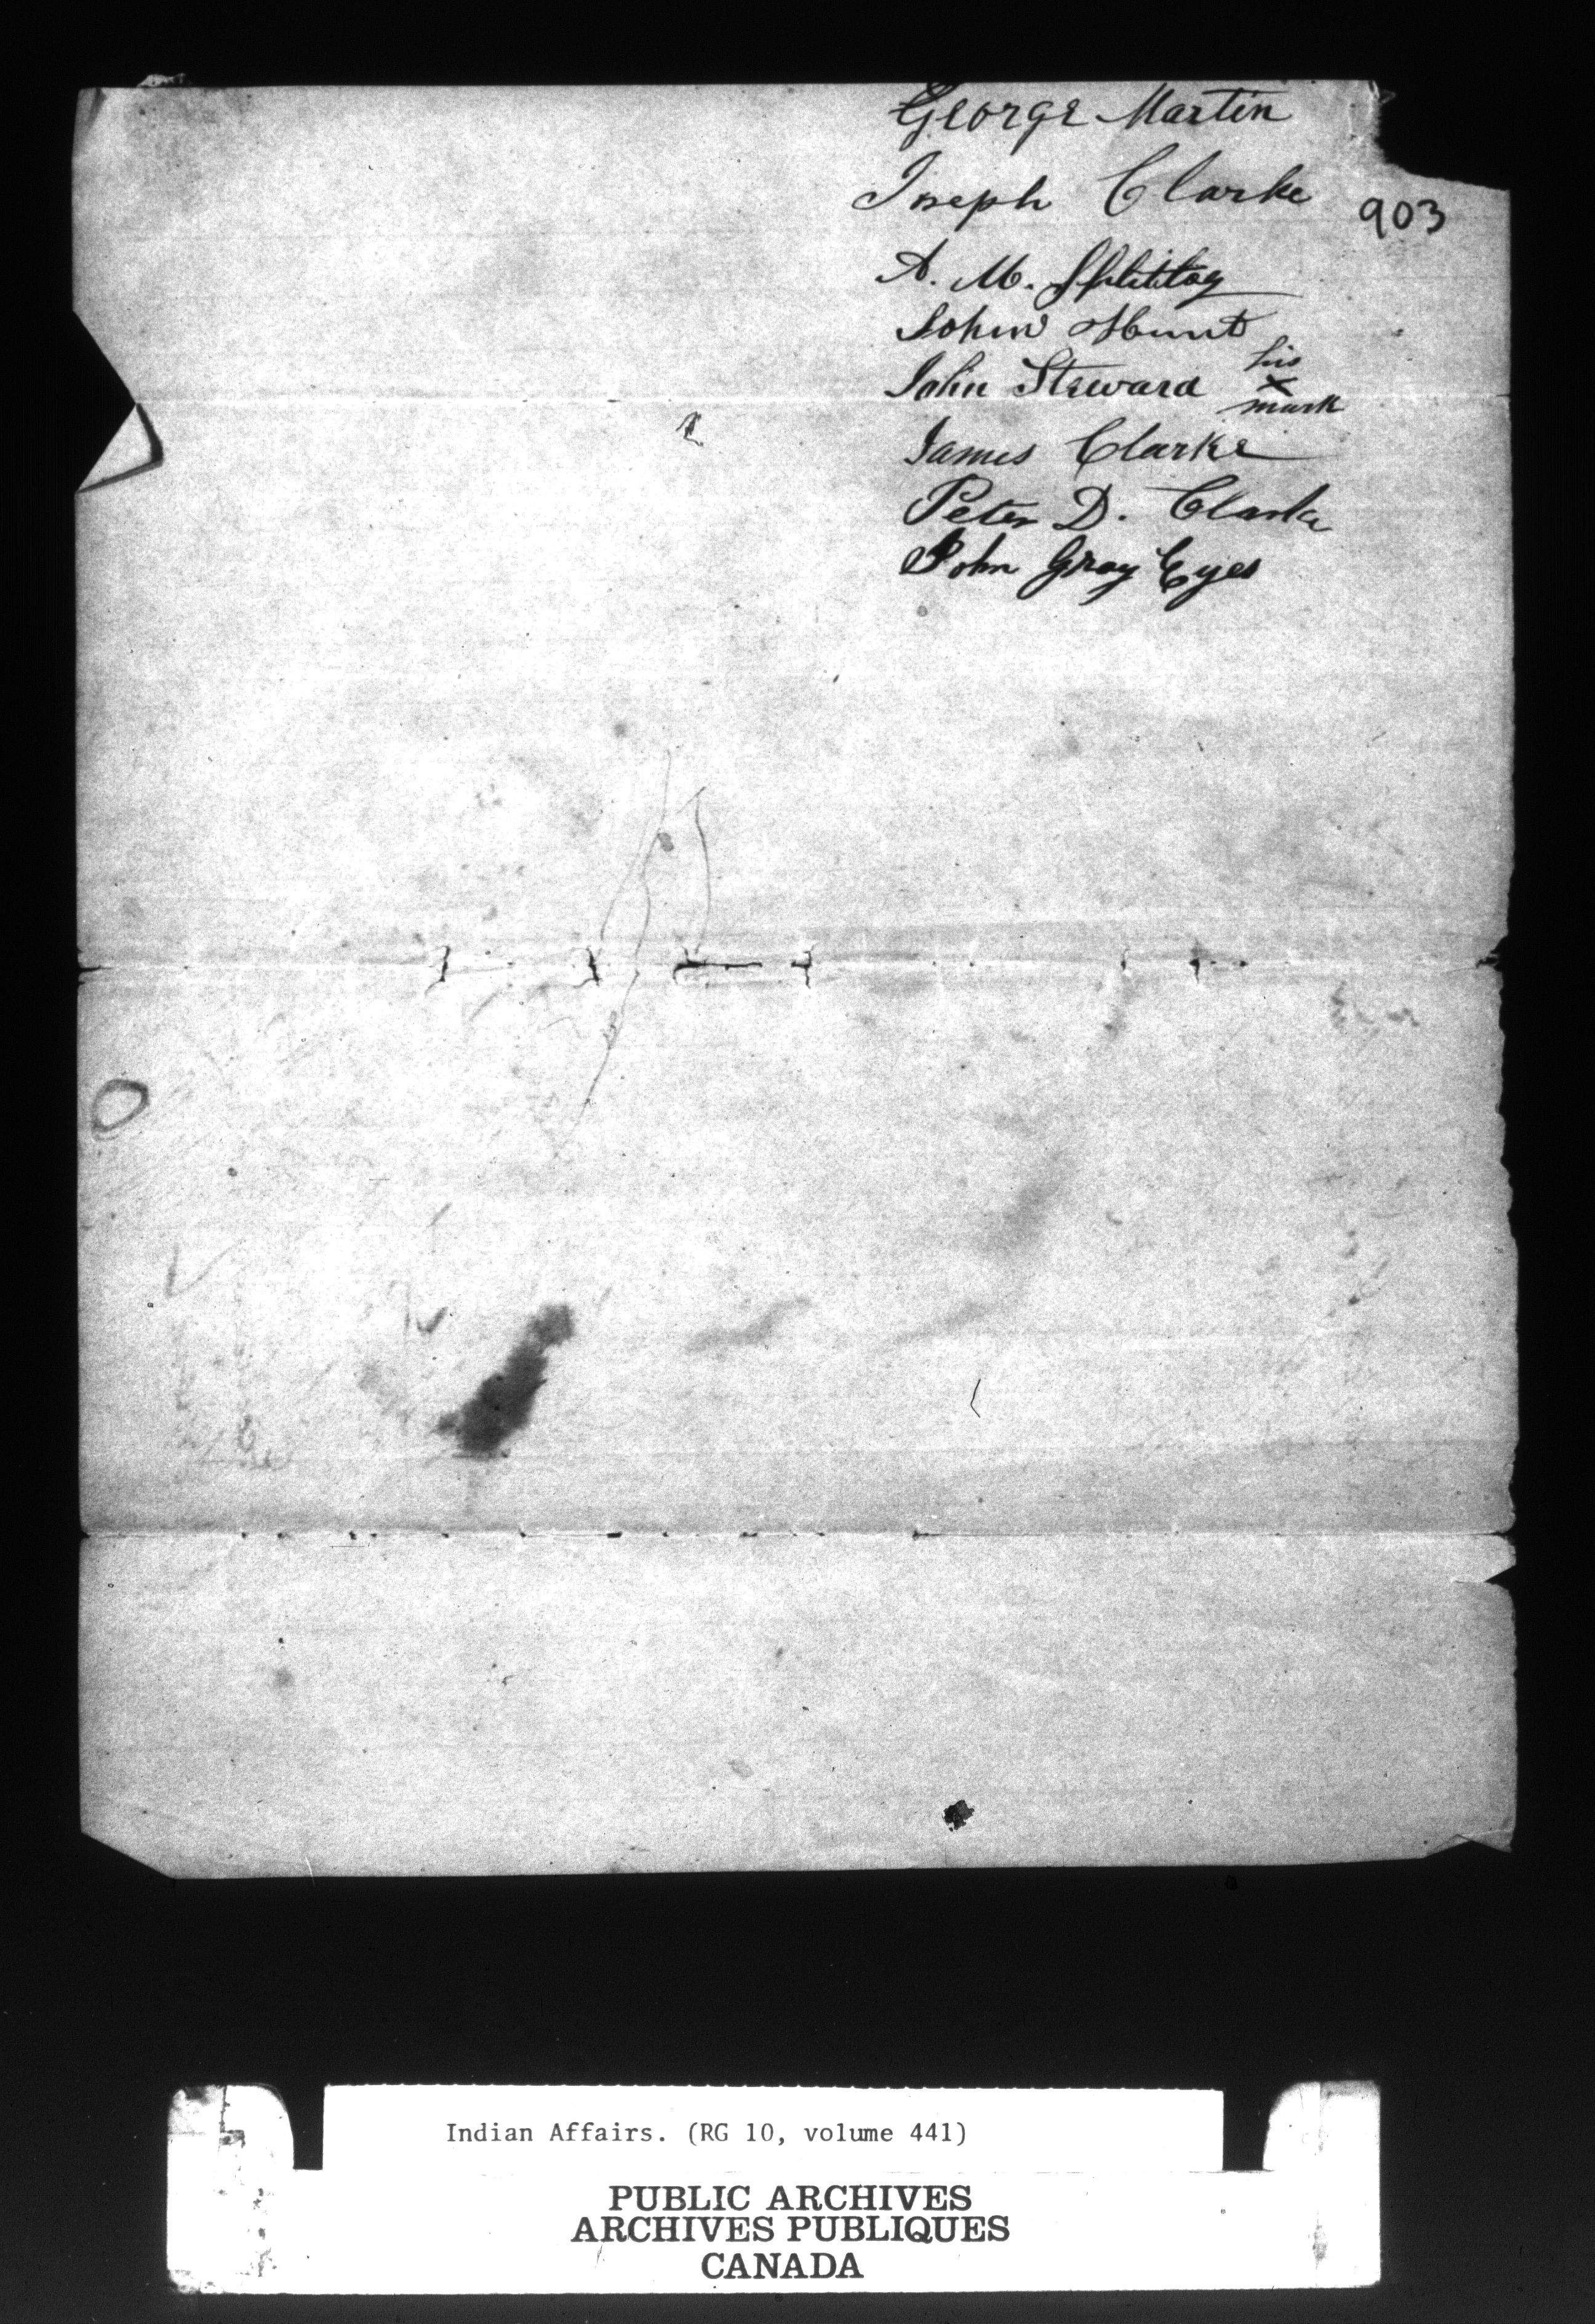 George Martin
Joseph Clarke
903
A. M. Splitlog
John Hunt
John Steward his x mark
James Clarke
Peter D. Clarke
John Gray Eyes
Indian Affairs. (RG 10, volume 441)
PUBLIC ARCHIVES
ARCHIVES PUBLIQUES
CANADA